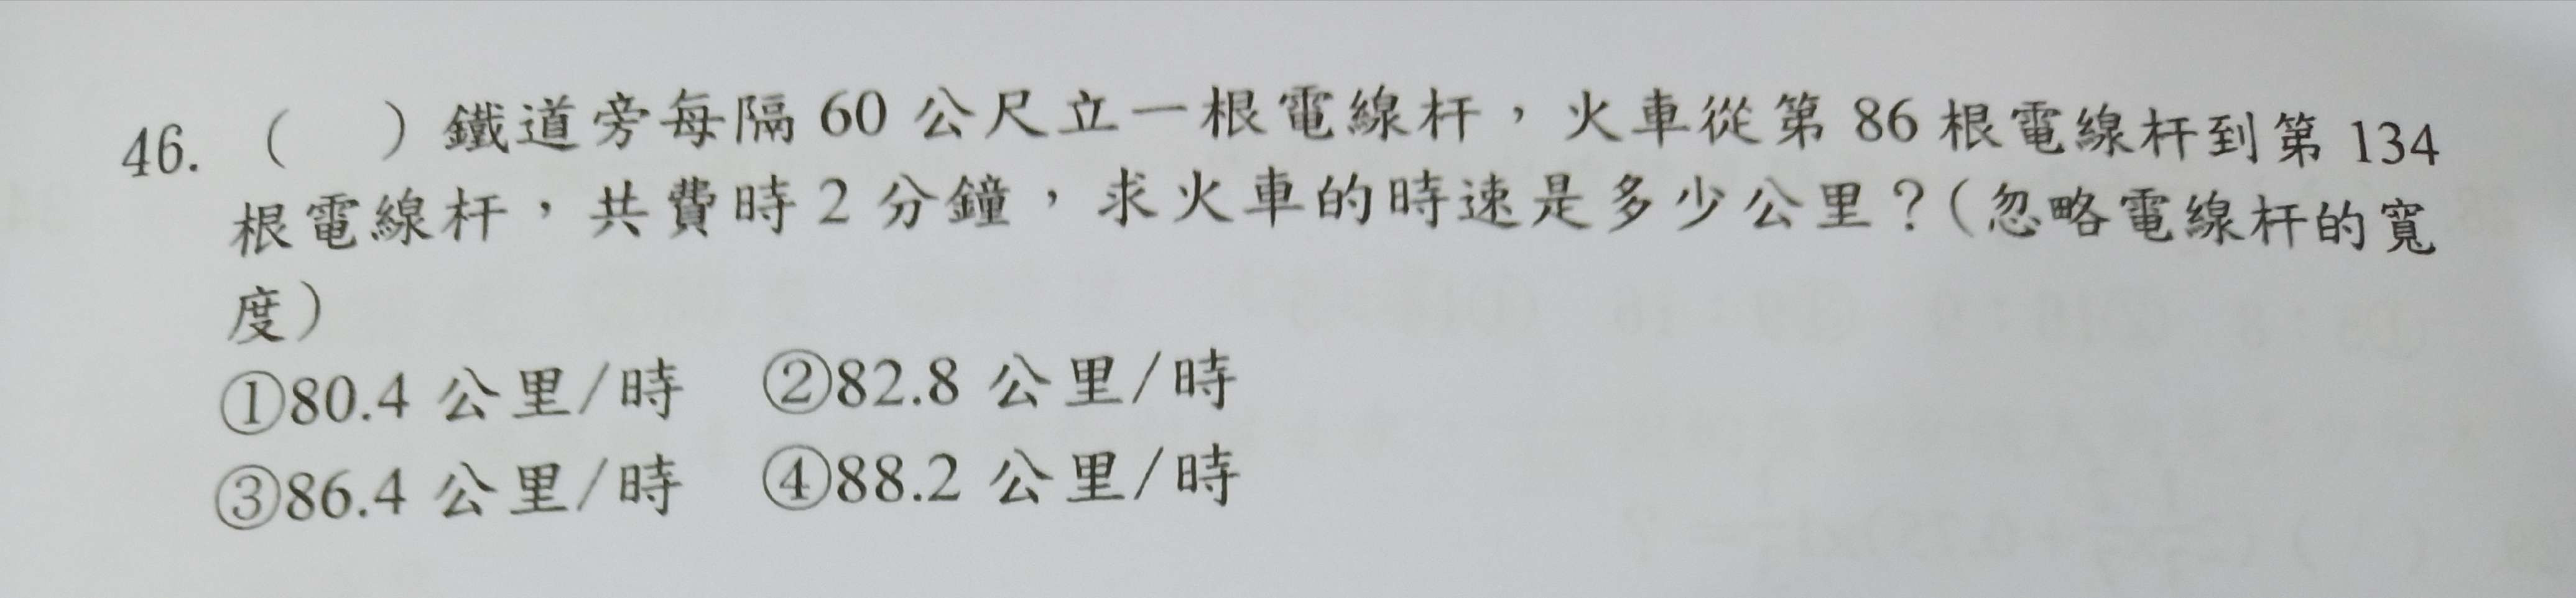 46. (　) 鐵道旁每隔 60 公尺立一根電線杆，火車從第 86 根電線杆到第 134
根電線杆，共費時 2 分鐘，求火車的時速是多少公里？(忽略電線杆的寬
度)
①80.4 公里/時　②82.8 公里/時
③86.4 公里/時　④88.2 公里/時